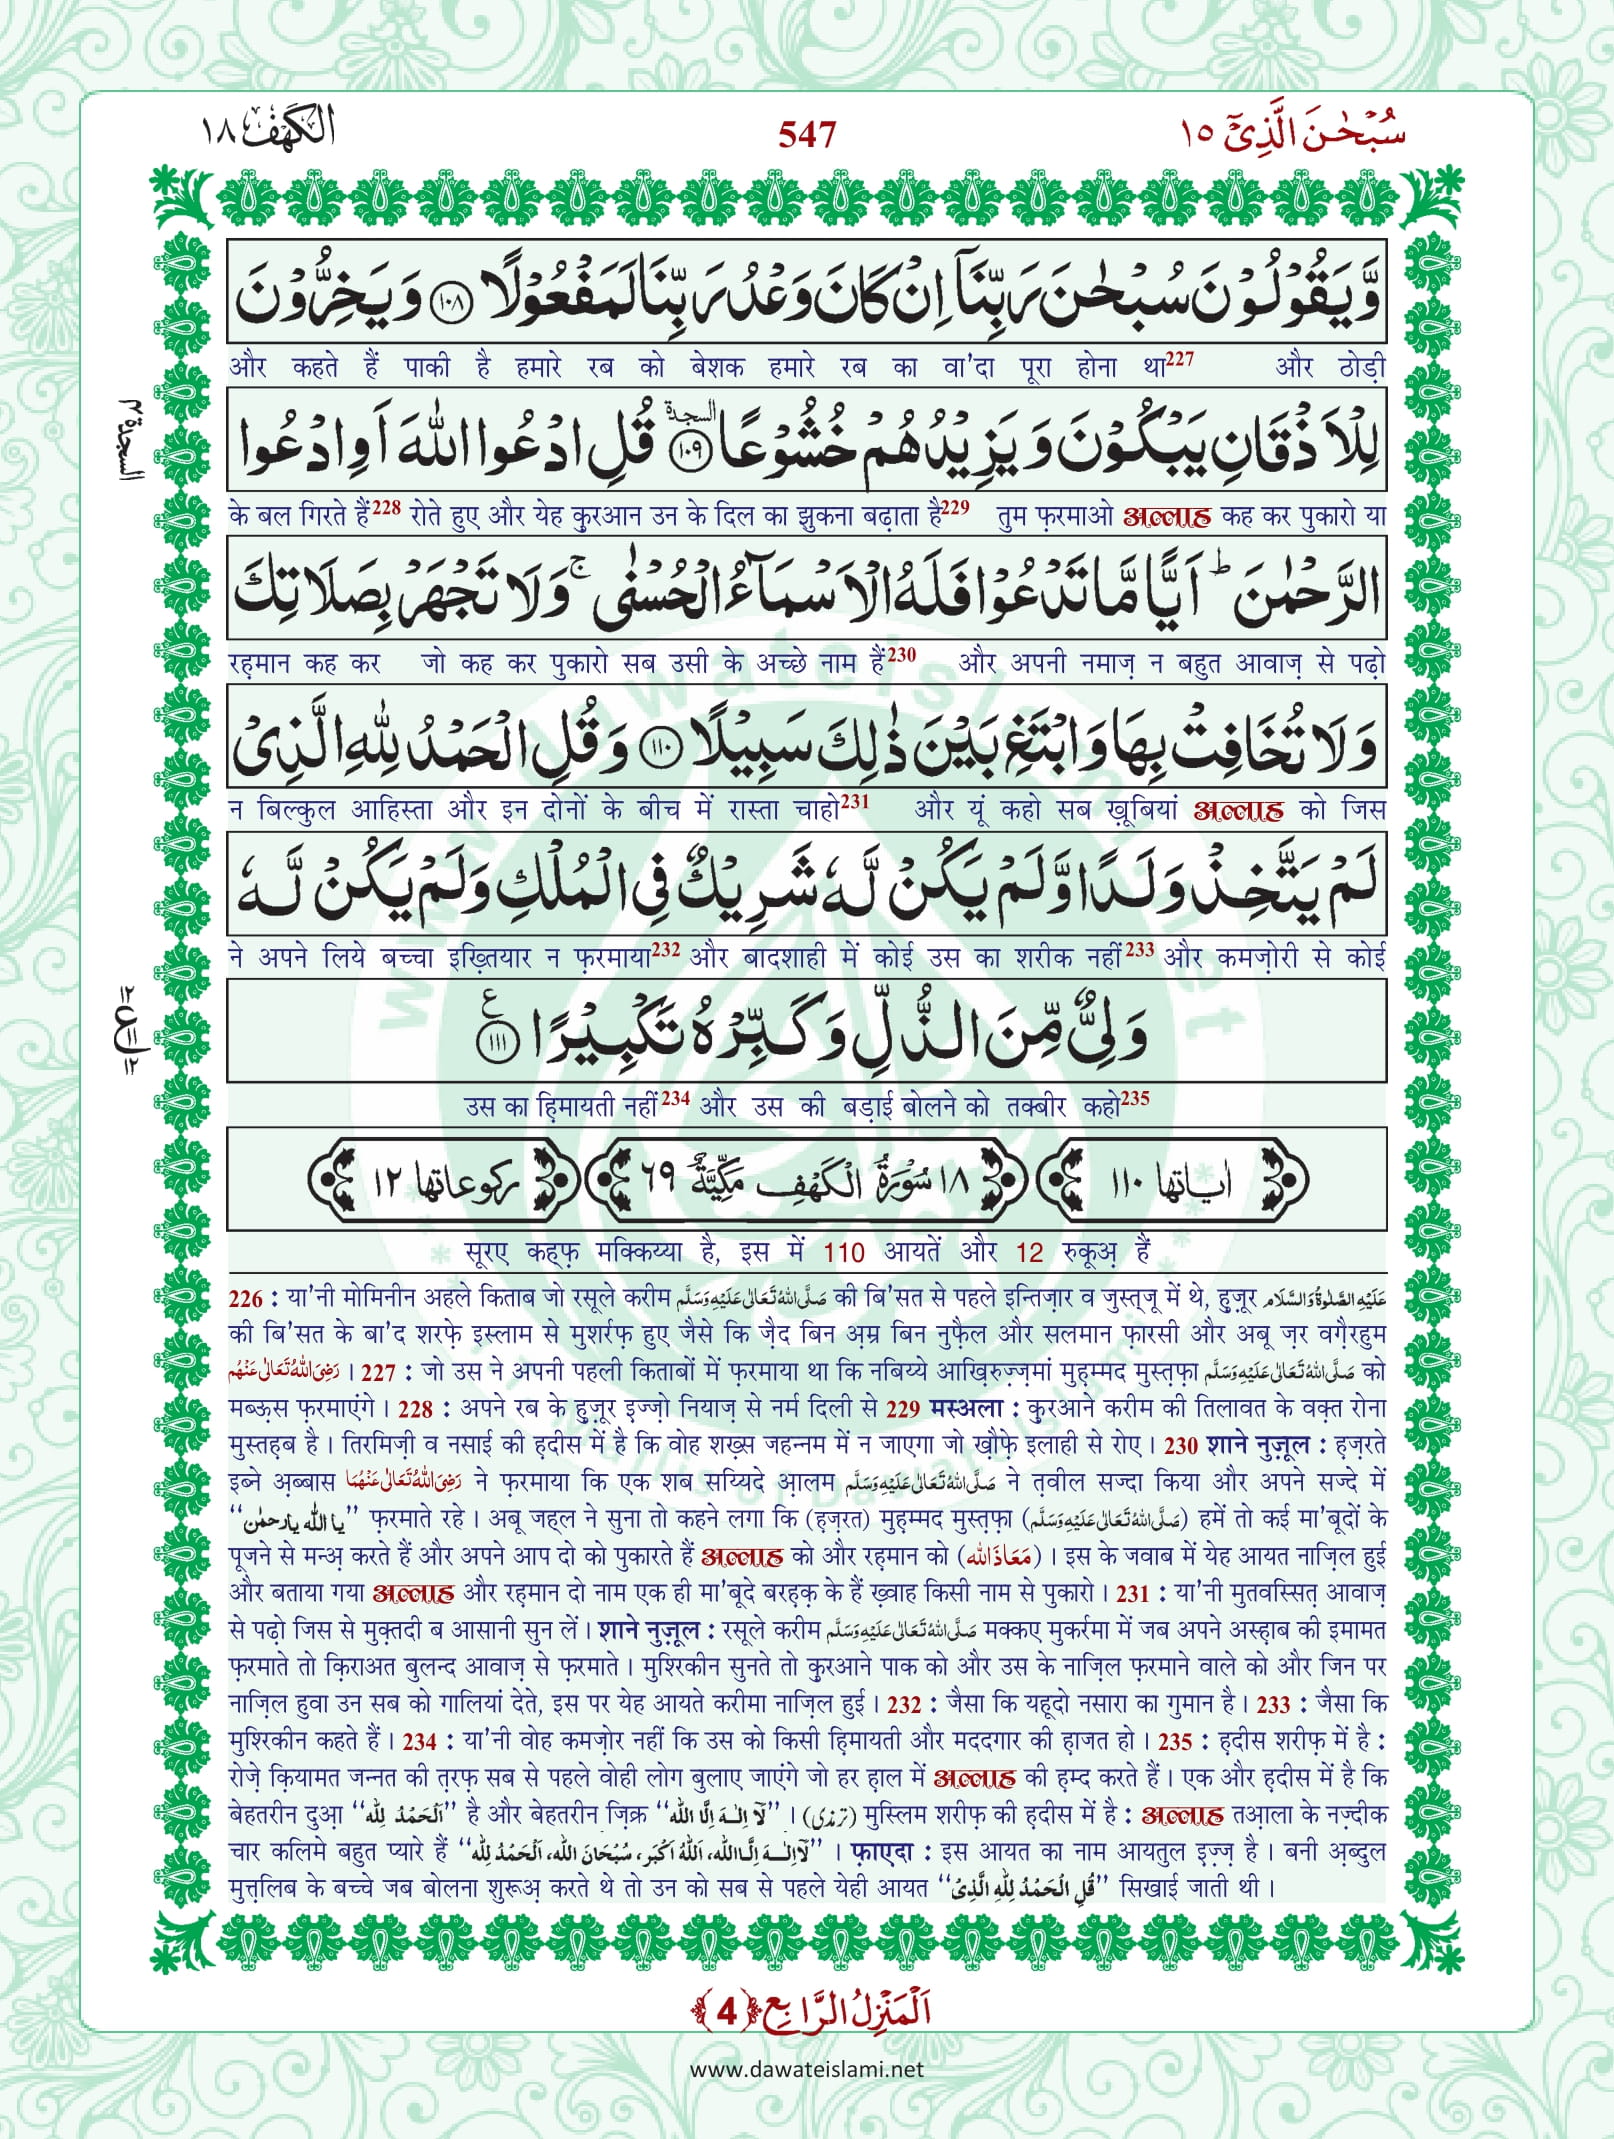 سُبْحٰنَ الَّذِیْۤ ١٥
547
الکَهْف ١٨
وَّ یَقُوْلُوْنَ سُبْحٰنَ رَبِّنَاۤ اِنْ كَانَ وَعْدُ رَبِّنَا لَمَفْعُوْلًا ۝١٠٨ وَ یَخِرُّوْنَ
और कहते हैं पाकी है हमारे रब को बेशक हमारे रब का वा'दा पूरा होना था227 और ठोड़ी
لِلْاَذْقَانِ یَبْكُوْنَ وَ یَزِیْدُهُمْ خُشُوْعًا ۝١٠٩ السجدة قُلِ ادْعُوا اللّٰهَ اَوِ ادْعُوا
السجدة ٤
के बल गिरते हैं228 रोते हुए और येह कुरआन उन के दिल का झुकना बढ़ाता है229 तुम फ़रमाओ अल्लाह कह कर पुकारो या
الرَّحْمٰنَ ؕ اَیًّا مَّا تَدْعُوْا فَلَهُ الْاَسْمَآءُ الْحُسْنٰى ۚ وَ لَا تَجْهَرْ بِصَلَاتِكَ
रहमान कह कर जो कह कर पुकारो सब उसी के अच्छे नाम हैं230 और अपनी नमाज़ न बहुत आवाज़ से पढ़ो
وَ لَا تُخَافِتْ بِهَا وَ ابْتَغِ بَیْنَ ذٰلِكَ سَبِیْلًا ۝١١٠ وَ قُلِ الْحَمْدُ لِلّٰهِ الَّذِیْ
न बिल्कुल आहिस्ता और इन दोनों के बीच में रास्ता चाहो231 और यूं कहो सब ख़ूबियां अल्लाह को जिस
لَمْ یَتَّخِذْ وَلَدًا وَّ لَمْ یَكُنْ لَّهٗ شَرِیْكٌ فِی الْمُلْكِ وَ لَمْ یَكُنْ لَّهٗ
ने अपने लिये बच्चा इख़्तियार न फ़रमाया232 और बादशाही में कोई उस का शरीक नहीं233 और कमज़ोरी से कोई
وَلِیٌّ مِّنَ الذُّلِّ وَ كَبِّرْهُ تَكْبِیْرًا ۝١١١ ع
उस का ह़िमायती नहीं234 और उस की बड़ाई बोलने को तक्बीर कहो235
اٰیاتها ١١٠ ١٨ سُوْرَةُ الْكَهْفِ مَكِّیَّةٌ ٦٩ رکوعاتها ١٢
सूरए कह्फ़ मक्किय्या है, इस में 110 आयतें और 12 रुकूअ़ हैं
226 : या'नी मोमिनीन अहले किताब जो रसूले करीम صَلَّی اللّٰهُ تَعَالٰی عَلَیْهِ وَسَلَّم की बि'सत से पहले इन्तिज़ार व जुस्त्जू में थे, हुज़ूर عَلَیْهِ الصَّلٰوةُ وَالسَّلَام
की बि'सत के बा'द शरफ़े इस्लाम से मुशर्रफ़ हुए जैसे कि ज़ैद बिन अ़म्र बिन नुफ़ैल और सलमान फ़ारसी और अबू ज़र वग़ैरहुम
رَضِیَ اللّٰهُ تَعَالٰی عَنْهُم । 227 : जो उस ने अपनी पहली किताबों में फ़रमाया था कि नबिय्ये आख़िरुज़्ज़मां मुह़म्मद मुस्त़फ़ा صَلَّی اللّٰهُ تَعَالٰی عَلَیْهِ وَسَلَّم को
मब्ऊस फ़रमाएंगे । 228 : अपने रब के हुज़ूर इज्ज़ो नियाज़ से नर्म दिली से 229 मस्अला : कुरआने करीम की तिलावत के वक़्त रोना
मुस्तह़ब है । तिरमिज़ी व नसाई की ह़दीस में है कि वोह शख़्स जहन्नम में न जाएगा जो ख़ौफ़े इलाही से रोए । 230 शाने नुज़ूल : ह़ज़रते
इब्ने अ़ब्बास رَضِیَ اللّٰهُ تَعَالٰی عَنْهُمَا ने फ़रमाया कि एक शब सय्यिदे आ़लम صَلَّی اللّٰهُ تَعَالٰی عَلَیْهِ وَسَلَّم ने त़वील सज्दा किया और अपने सज्दे में
“یا اللّٰه یا رحمٰن” फ़रमाते रहे । अबू जह्ल ने सुना तो कहने लगा कि (ह़ज़रत) मुह़म्मद मुस्त़फ़ा (صَلَّی اللّٰهُ تَعَالٰی عَلَیْهِ وَسَلَّم) हमें तो कई मा'बूदों के
पूजने से मन्अ़ करते हैं और अपने आप दो को पुकारते हैं अल्लाह को और रह़मान को (مَعَاذَ اللّٰه) । इस के जवाब में येह आयत नाज़िल हुई
और बताया गया अल्लाह और रह़मान दो नाम एक ही मा'बूदे बरह़क़ के हैं ख़्वाह किसी नाम से पुकारो । 231 : या'नी मुतवस्सित़ आवाज़
से पढ़ो जिस से मुक़्तदी ब आसानी सुन लें । शाने नुज़ूल : रसूले करीम صَلَّی اللّٰهُ تَعَالٰی عَلَیْهِ وَسَلَّم मक्कए मुकर्रमा में जब अपने अस्ह़ाब की इमामत
फ़रमाते तो क़िराअत बुलन्द आवाज़ से फ़रमाते । मुश्रिकीन सुनते तो कुरआने पाक को और उस के नाज़िल फ़रमाने वाले को और जिन पर
नाज़िल हुवा उन सब को गालियां देते, इस पर येह आयते करीमा नाज़िल हुई । 232 : जैसा कि यहूदो नसारा का गुमान है । 233 : जैसा कि
मुश्रिकीन कहते हैं । 234 : या'नी वोह कमज़ोर नहीं कि उस को किसी ह़िमायती और मददगार की ह़ाजत हो । 235 : ह़दीस शरीफ़ में है :
रोज़े क़ियामत जन्नत की त़रफ़ सब से पहले वोही लोग बुलाए जाएंगे जो हर ह़ाल में अल्लाह की ह़म्द करते हैं । एक और ह़दीस में है कि
बेहतरीन दुआ़ “اَلْحَمْدُ لِلّٰه” है और बेहतरीन ज़िक्र “لَآ اِلٰهَ اِلَّا اللّٰه” । (ترمذی) मुस्लिम शरीफ़ की ह़दीस में है : अल्लाह तआ़ला के नज़्दीक
चार कलिमे बहुत प्यारे हैं “لَآ اِلٰهَ اِلَّا اللّٰه، اَللّٰهُ اَكْبَر، سُبْحَانَ اللّٰه، اَلْحَمْدُ لِلّٰه” । फ़ाएदा : इस आयत का नाम आयतुल इ़ज़्ज़ है । बनी अ़ब्दुल
मुत्त़लिब के बच्चे जब बोलना शुरूअ़ करते थे तो उन को सब से पहले येही आयत “قُلِ الْحَمْدُ لِلّٰهِ الَّذِیْ” सिखाई जाती थी ।
اَلْمَنْزِلُ الرَّابِع ﴿4﴾
www.dawateislami.net